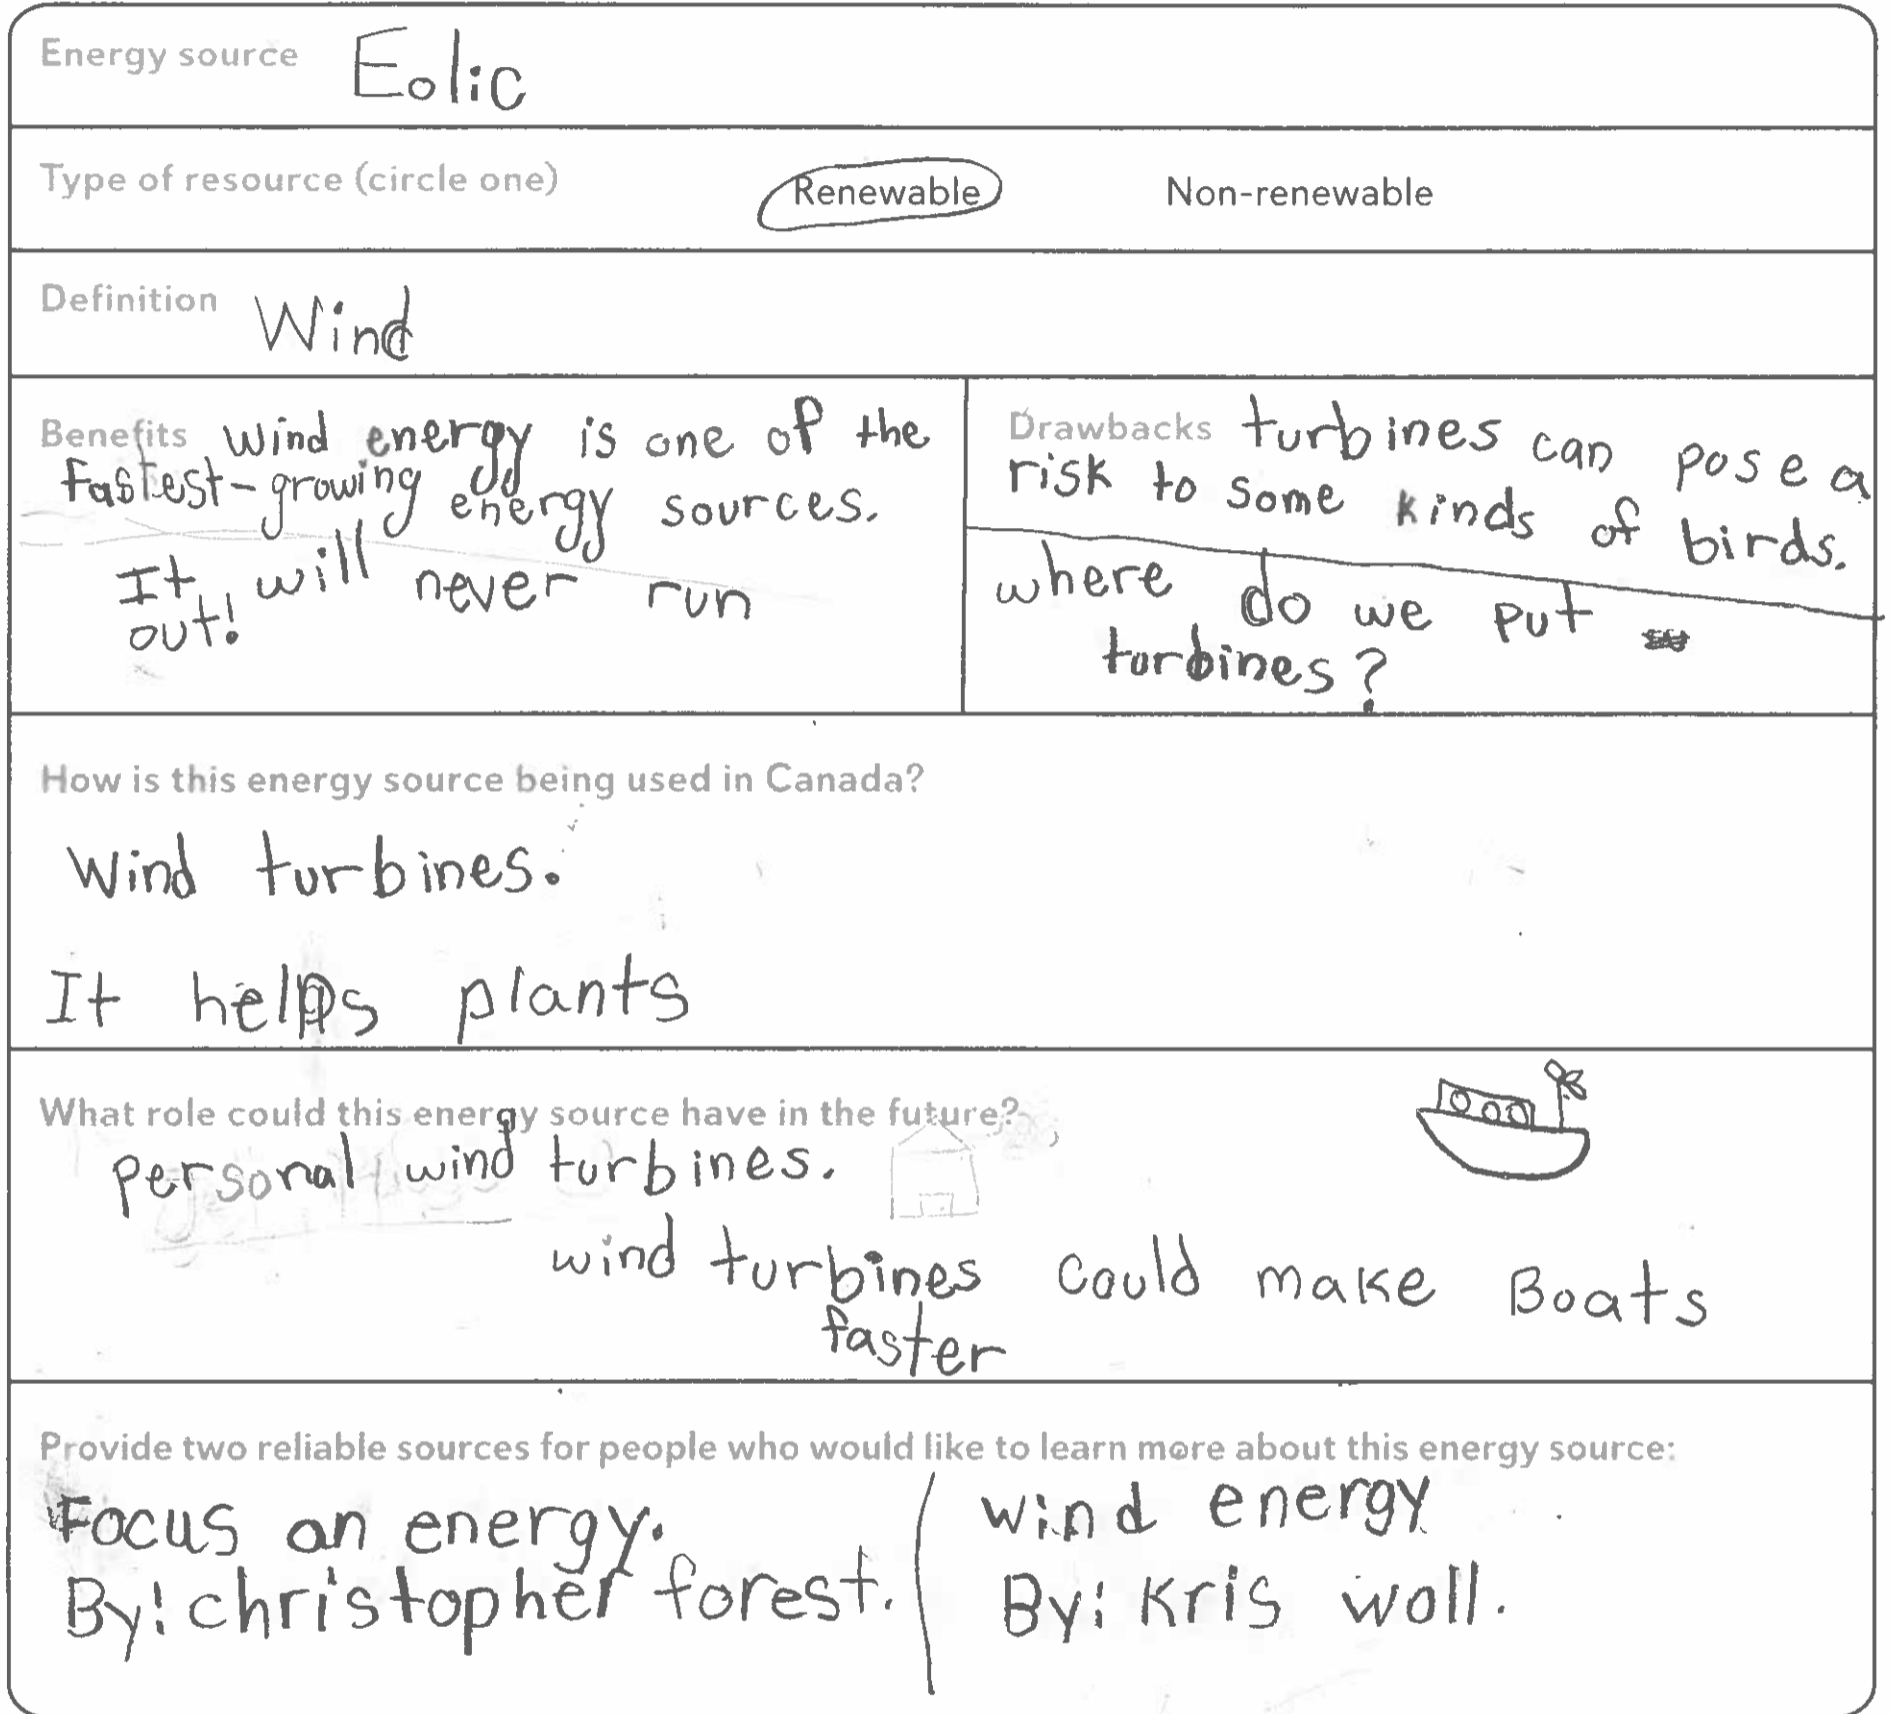 Energy source Eolic
Type of resource (circle one) Renewable Non-renewable
Definition Wind
Benefits wind energy is one of the
fastest-growing energy sources.
It will never run
out!
Drawbacks turbines can pose a
risk to some kinds of birds.
where do we put
turbines?
How is this energy source being used in Canada?
Wind turbines.
It helps plants
What role could this energy source have in the future?
personal wind turbines.
wind turbines could make Boats
faster
Provide two reliable sources for people who would like to learn more about this energy source:
Focus on energy.
By: christopher forest.
wind energy
By: Kris woll.